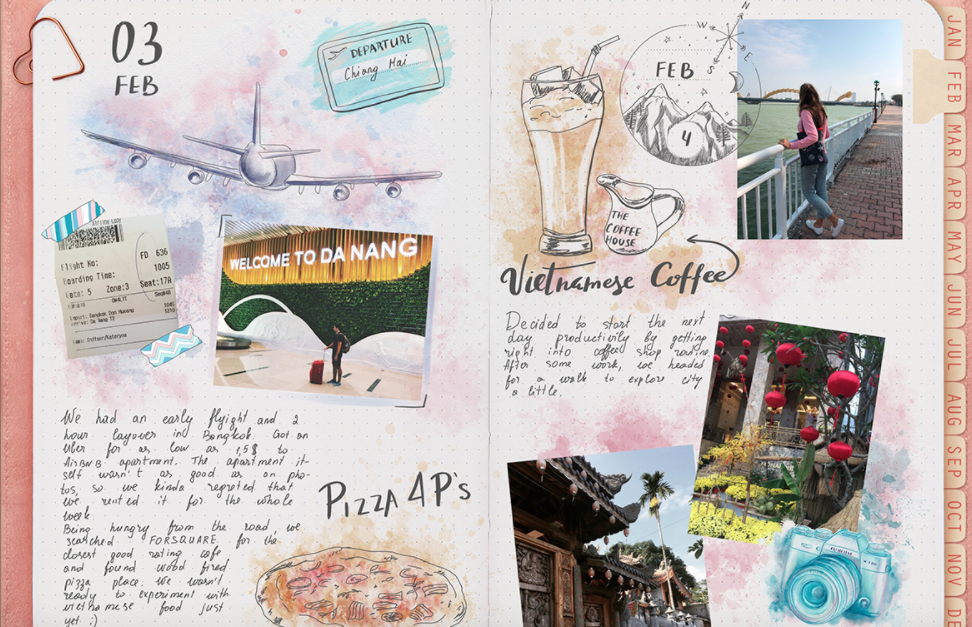 03
FEB
DEPARTURE
Chiang Mai
Flight No:
FD 636
Boarding Time:
1005
Gate: 5
Zone:3
Seat:17A
WELCOME TO DA NANG
We had an early flyight and 2
hour layover in Bangkok. Got an
Uber for as low as 1,5$ to
AirBnB apartment. The apartment it-
self wasn't as good as on pho-
tos, so we kinda regreted that
we rented it for the whole
week.
Being hungry from the road we
searched FORSQUARE for the
closest good rating cafe
and found wood fired
pizza place. We wasn't
ready to experiment with
vietnamese food just
yet :)
PIZZA 4P's
N
W
E
S
FEB
4
THE
COFFEE
HOUSE
Vietnamese Coffee
Decided to start the next
day productively by getting
right into coffee shop routine.
After some work, we headed
for a walk to explore city
a little.
JAN
FEB
MAR
APR
MAY
JUN
JUL
AUG
SEP
OCT
NOV
DE